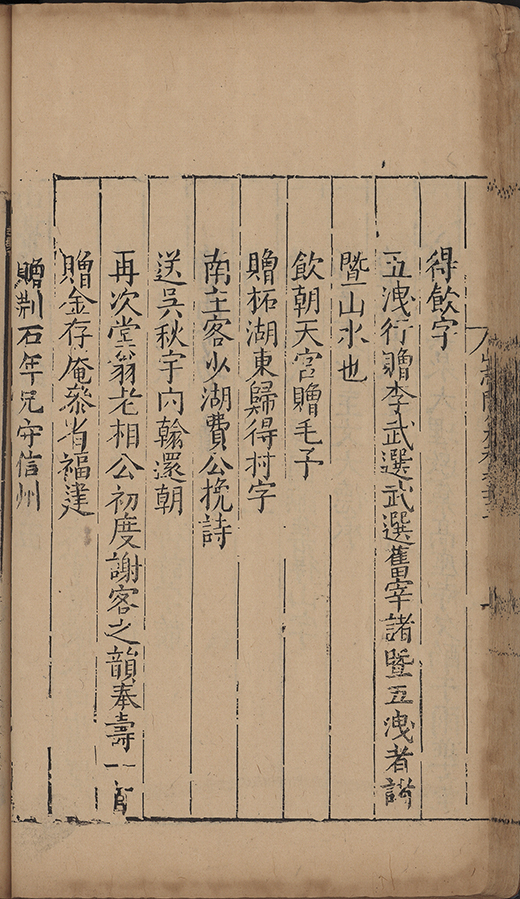 得飲字
五洩行贈李武選武選舊宰諸暨五洩者諸
暨山水也
飲朝天宮贈毛子
贈柘湖東歸得村字
南主客少湖費公挽詩
送吳秋宇内翰還朝
再次堂翁老相公初度謝客之韻奉壽一首
贈金存庵參省福建
贈荆石年兄守信州